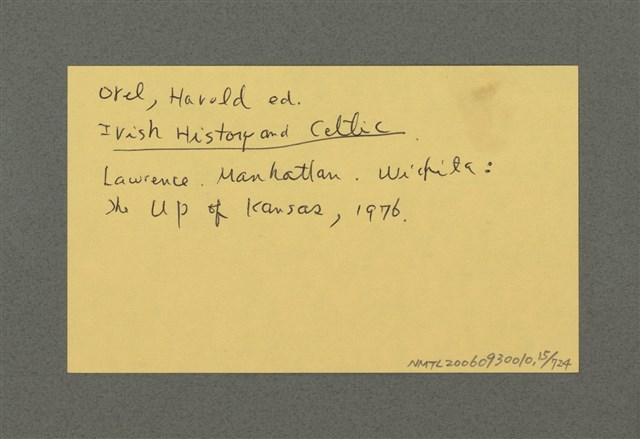 Orel, Harold ed.
Irish History and Celtic.
Lawrence. Manhattan. Wichita:
The Up of Kansas, 1976.
NMTL20060930010.15/724